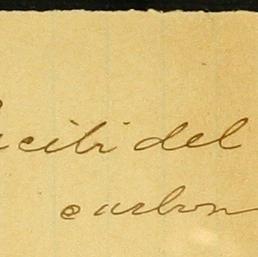 ecibi del
carbon